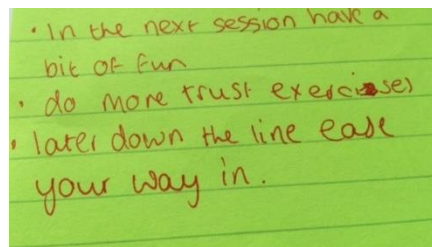 • In the next session have a
bit of fun
• do more trust exercises
• later down the line ease
your way in.